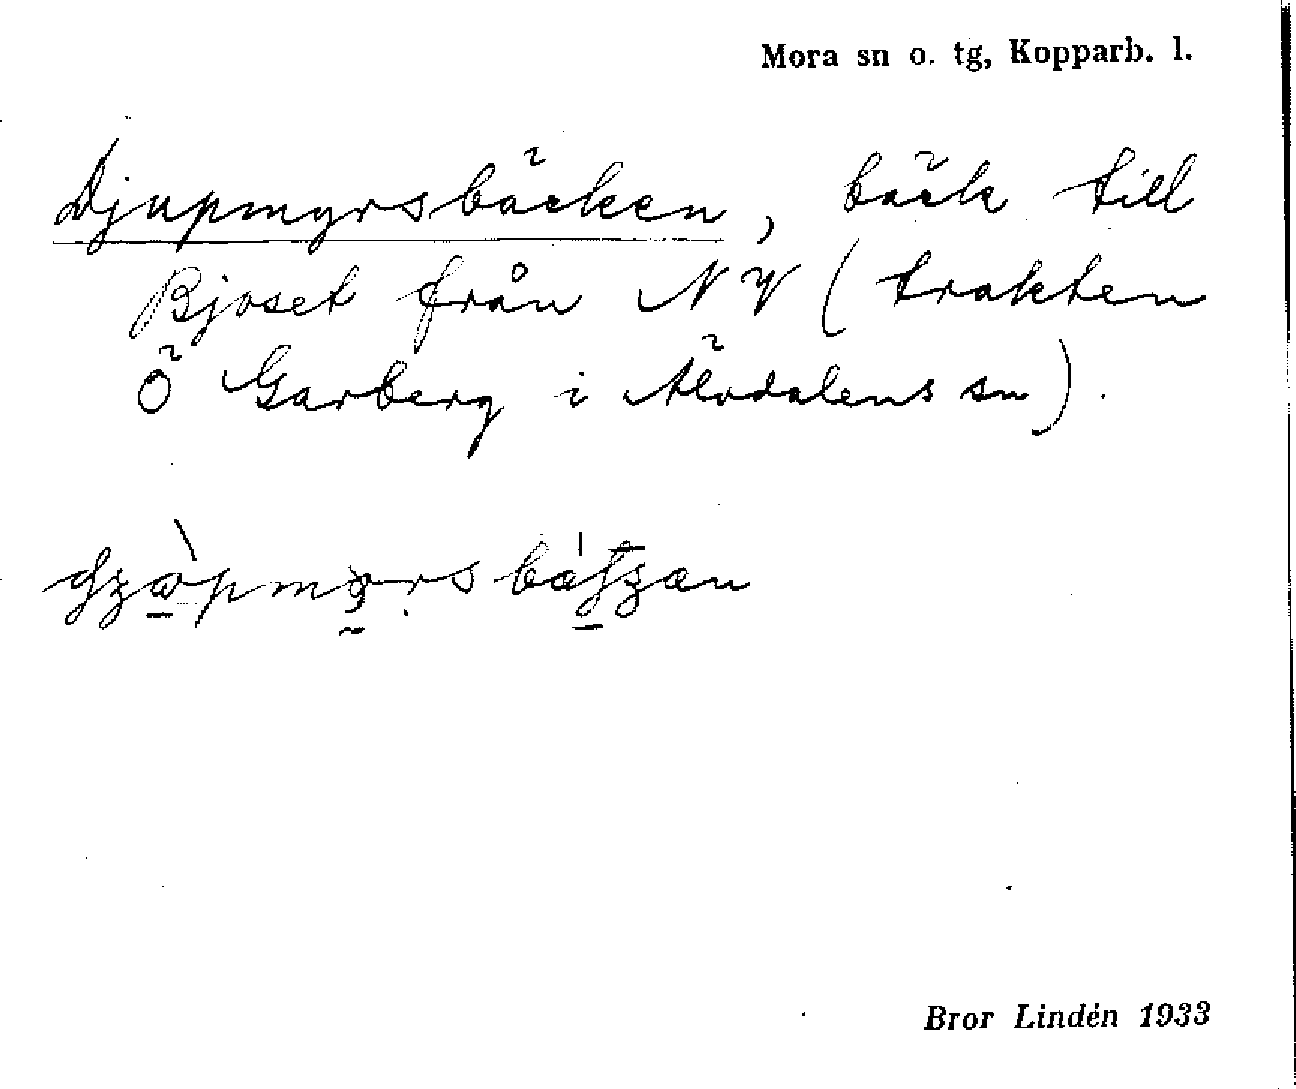 Mora sn o. tg, Kopparb. l.
Djupmyrsbäcken, bäck till
Bjoset från NV (trakten
Ö Garberg i Älvdalens sn).
Bror Lindén 1933